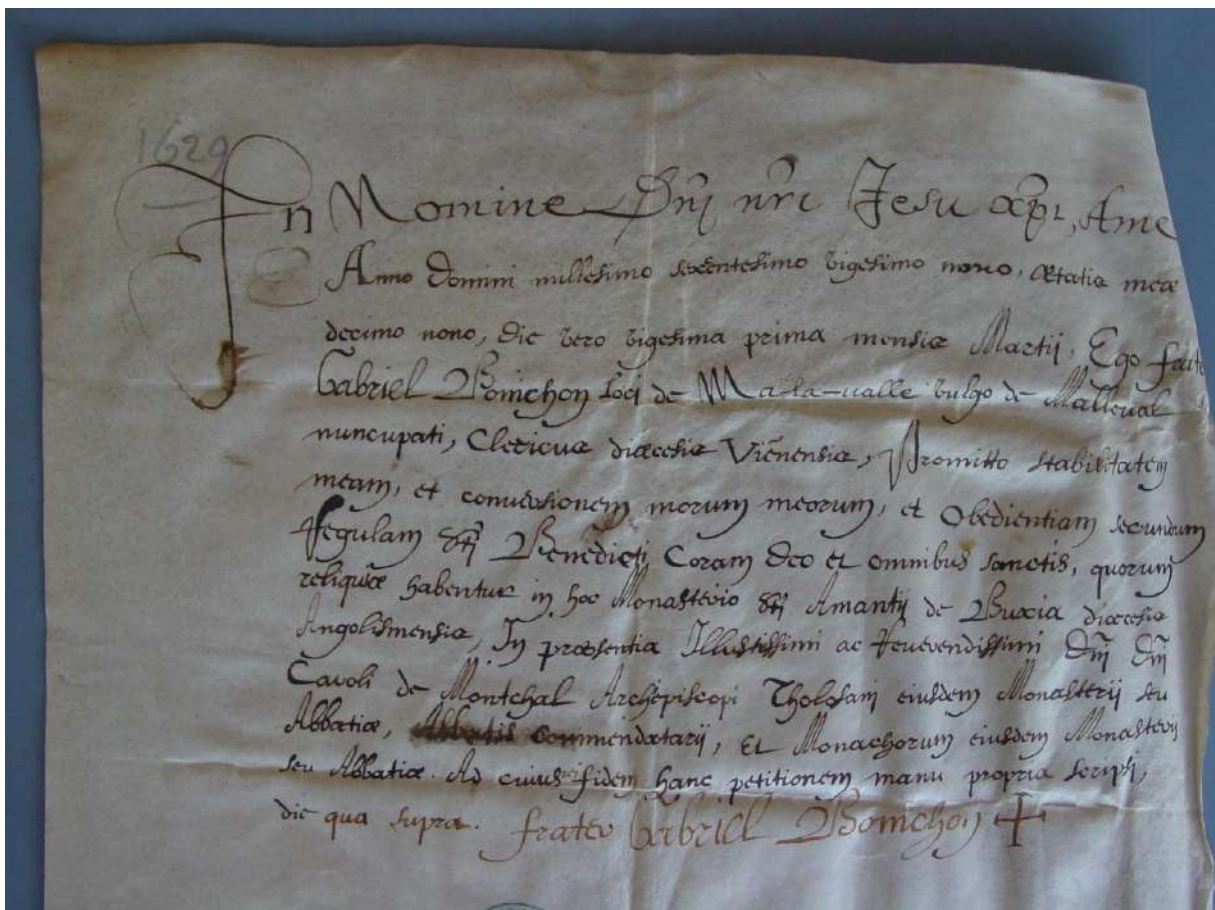 1629
In Nomine Dnj nrj Jesu xpi, Ame
Anno Domini millesimo sexcentesimo vigesimo nono, ætatis meæ
decimo nono, die vero vigesima prima mensis Martij. Ego frate
Gabriel Bomchon loci de Mala-ualle vulgo de Malleual
nuncupati, Clericus diœcesis Viēnensis, Promitto stabilitatem
meam, et conuersionem morum meorum, et Obedientiam secundum
Regulam Sti Benedicti, Coram Deo et omnibus sanctis, quorum
reliquiæ habentur in hoc Monasterio Sti Amantij de Buxia diœcesis
Angolismensis, In præsentia Illustissimi ac Reuerendissimi Dnj Dnj
Caroli de Montchal Archiepiscopi Tholosani eiusdem Monasterij seu
Abbatiæ, Abbatis commendatarij, Et Monachorum eiusdem Monasterij
seu Abbatiæ. Ad cuius rei fidem hanc petitionem manu propria scripsi,
die qua supra. frater Gabriel Bomchon